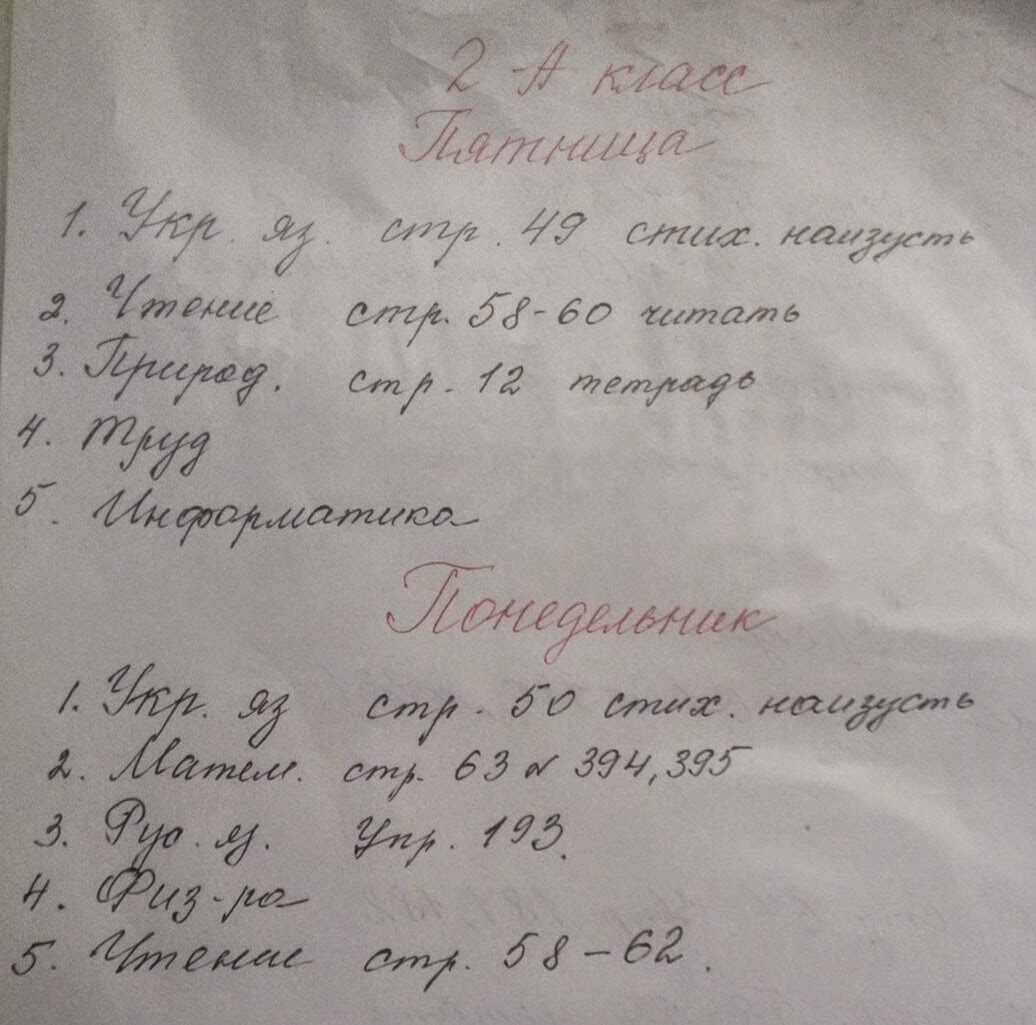 2-А класс
Пятница
1. Укр. яз. стр. 49 стих. наизусть
2. Чтение стр. 58-60 читать
3. Природ. стр. 12 тетрадь
4. Труд
5. Информатика
Понедельник
1. Укр. яз стр. 50 стих. наизусть
2. Матем. стр. 63 № 394, 395
3. Рус. яз. Упр. 193.
4. Физ-ра
5. Чтение стр. 58-62.